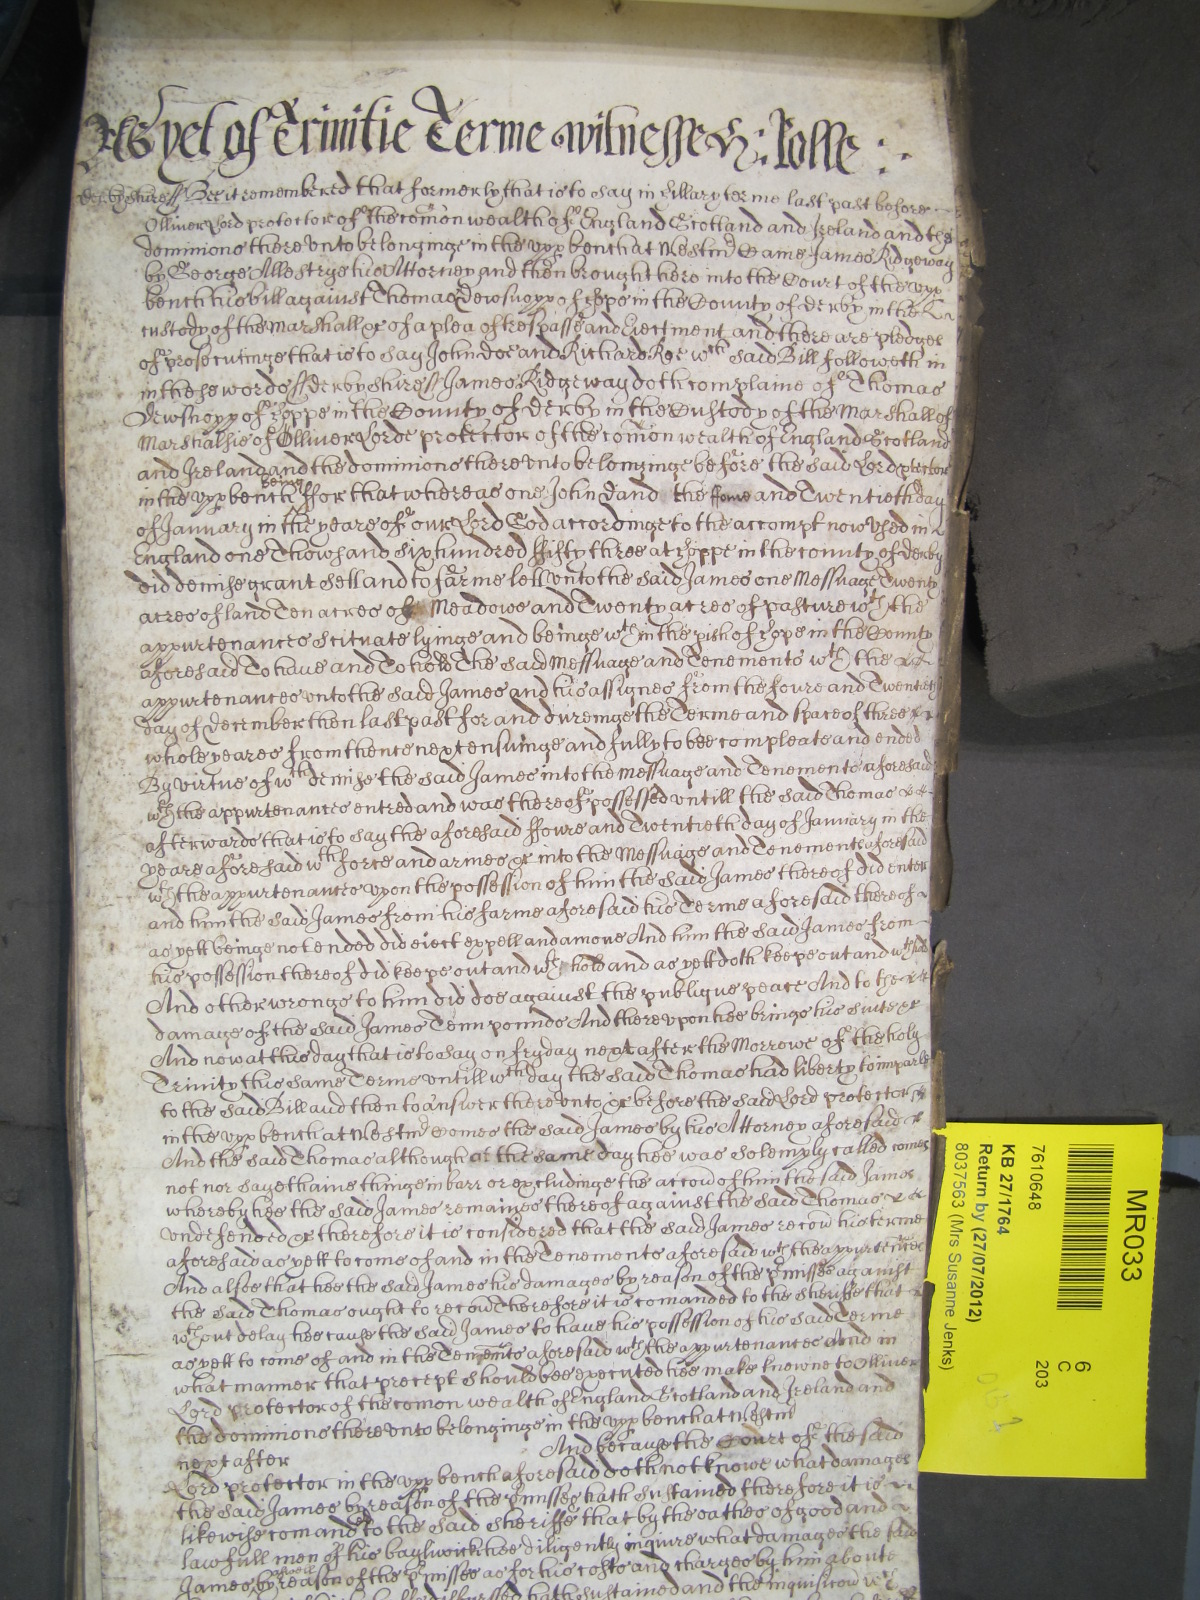 As yet of Trinitie Terme witnesse H: Rolle :
Derbyshire ss Bee it remembered that formerly that is to say in Hillary terme last past before
Olliver Lord protector of the comon wealth of England Scotland and Ireland and the
dominions there vnto belonginge in the vpp bench at Westmr Came James Ridgeway
by George Allestrye his Attorney and then brought here into the Court of the vpp
bench his bill against Thomas of Hope in the County of Derby in the
custody of the Marshall &c of a plea of trespasse and Eiectment and there are pledges
of prosecutinge that is to say John Doe and Richard Roe wch said Bill followeth in
in these words ss Derbyshire ss James Ridgeway doth complaine of Thomas
of Hoppe in the County of Derby in the Custody of the Marshall of
Marshalsie of Olliver Lorde protector of the comon wealth of England Scotland
and Ireland and the dominions there vnto belonginge before the said Lord ptector
in the vpp bench being ffor that whereas one John Dand the foure and Twentieth day
of January in the yeare of our Lord God accordinge to the accompt now vsed in
England one Thowsand six hundred ffifty three at Hoppe in the county of Derby
did demise grant sell and to farme lett vnto the said James one Messuage Twenty
acres of land Ten acres of Meadowe and Twenty acres of pasture wth the
appurtenances scituate lyinge and beinge wthin the pish of Hope in the County
aforesaid To have and To hold The said Messuage and Tenements wth the
appurtenances vnto the said James and his assignes from the foure and Twentieth
day of december then last past for and dureinge the Terme and space of three
whole yeares from thence next ensuinge and fully to bee compleate and ended
By virtue of wch demise the said James into the messuage and Tenements aforesaid
wth the appurtenances entred and was thereof possessed vntill the said Thomas
afterwards that is to say the aforesaid ffoure and Twentieth day of January in the
yeare aforesaid wth force and armes &c into the Messuage and Tenements aforesaid
wth the appurtenances vpon the possession of him the said James thereof did enter
and him the said James from his farme aforesaid his Terme aforesaid thereof
as yett beinge not ended did eiect expell and amove And him the said James from
his possession thereof did keepe out and wth hold and as yett doth keepe out and wth hold
And other wrongs to him did doe against the publique peace And to the
damage of the said James Tenn pounds And there vpon hee brings his suite &c
And now at this day that is to say on fryday next after the Morrowe of the holy
Trinity this same Terme vntill wch day the said Thomas had liberty to imparle
to the said Bill and then to answer there vnto &c before the said Lord protector
in the vpp bench at Westmr comes the said James by his Attorney aforesaid
And the said Thomas although at the same day hee was solemply called comes
not nor sayethaine thinge in barr or excludinge the accon of him the said James
whereby hee the said James remaines thereof against the said Thomas
vndefended &c therefore it is considered that the said James recou his terme
aforesaid as yett to come of and in the Tenements aforesaid wth the appurtences
And alsoe that hee the said James his damages by reason of the pmisses against
the said Thomas ought to recou Therefore it is comanded to the Sheriffe that
wthout delay hee cause the said James to have his possession of his said Terme
as yett to come of and in the Tenements aforesaid wth the appurtenances And in
what manner that precept should bee executed hee make knowne to Olliver
Lord Protector of the comon wealth of England Scotland and Ireland and
the dominions there vnto belonginge in the vpp bench at Westmr
next after And because the Court of the said
Lord protector in the vpp bench aforesaid doth not knowe what damages
the said James by reason of the pmisses hath sustained therefore it is
likewise comand to the said Sheriffe that by the oathes of good and
lawfull men of his baylywick hee diligently inquire what damages the said
James aswell by reason of the pmisses as for his costs and charges by him aboute
hath sustained and the inquisicon wch
MR033
6
C
203
7610648
KB 27/1764
Return by (27/07/2012)
8037563 (Mrs Susanne Jenks)